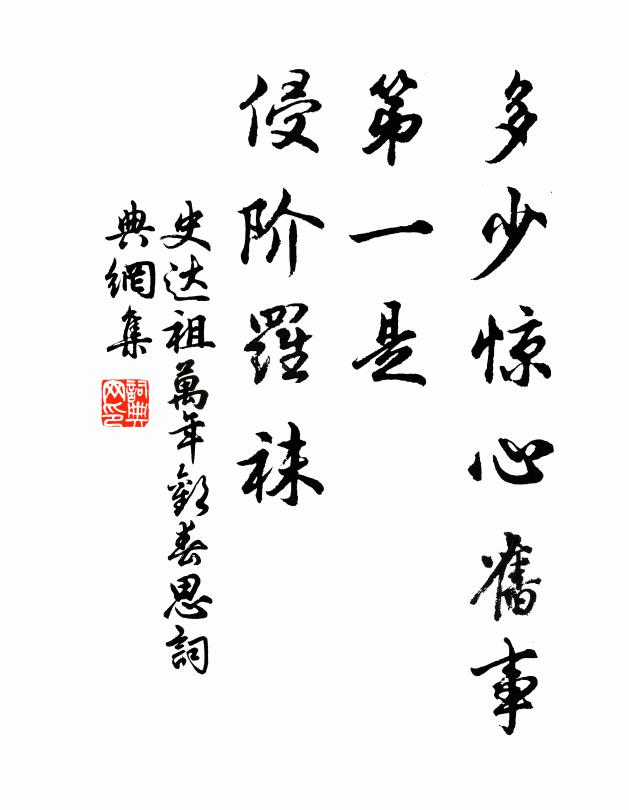 多少惊心舊事
第一是
侵阶羅袜
史达祖萬年歡春思詞
典網集
詞典
网印